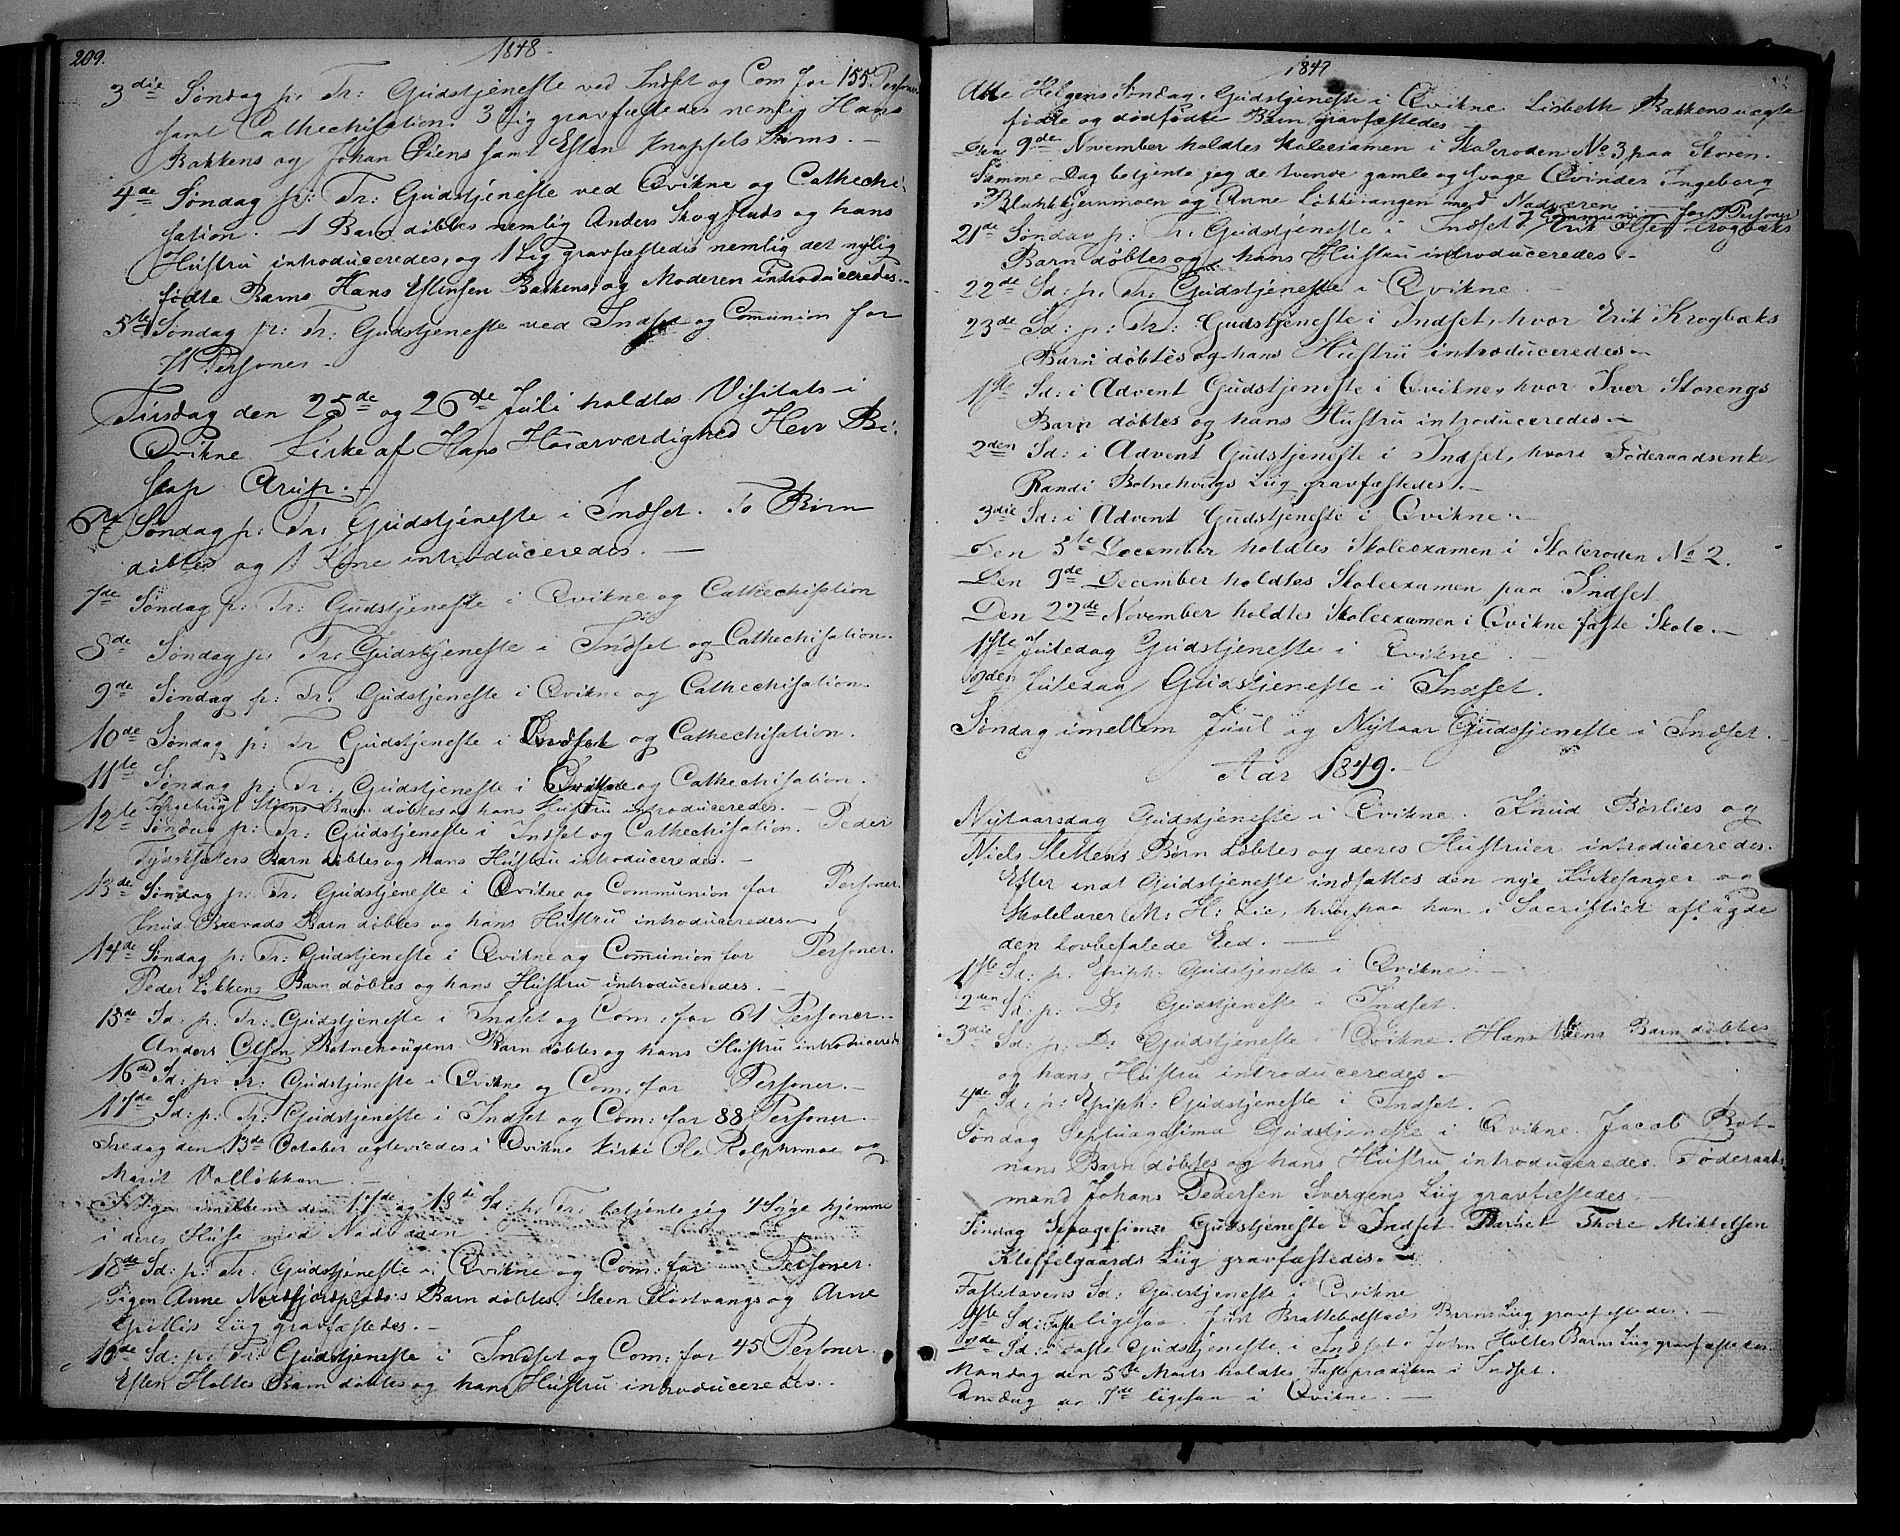 209.
1848
3die Søndag p. Tr: Gudstjeneste ved Indset og Com for 155 Personer
samt Cathechisation. 3 Lig gravfæstedes nemlig Hans
Bakkens og Johan Øiens samt Esten
4de Søndag p: Tr: Gudstjeneste ved Qvikne og Cathechi-
sation. 1 Barn døbtes nemlig Anders Skogstads og hans
Hustru introduceredes, og 1 Lig gravfæstedes nemlig det nylig
fødte Barns Hans Estensen Bakkens, og Moderen introduceredes.
5te Søndag p: Tr: Gudstjeneste ved Indset og Comunion for
Personer
Tirsdag den 25de og 26de Juli holdtes Visitats i
Qvikne Kirke af Hans Høiærværdighed Herr Bi-
skop Arup.
6te Søndag p: Tr: Gudstjeneste i Indset. To Børn
døbtes og 1 Kone introduceredes.
7de Søndag p: Tr: Gudstjeneste i Qvikne og Cathechisation
8de Søndag p: Tr: Gudstjeneste i Indset og Cathechisation.
9de Søndag p: Tr: Gudstjeneste i Qvikne og Cathechisation.
10de Søndag p: Tr Gudstjeneste i Indset og Cathechisation.
11te Søndag p: Tr. Gudstjeneste i Qvikne og Cathechisation.
Ingebrigt Stens Barn døbtes og hans Hustru introduceredes.
12te Søndag p: Tr: Gudstjeneste i Indset og Cathechisation. Peder
Barn døbtes og hans Hustru introduceredes.
13de Søndag p: Tr: Gudstjeneste i Qvikne og Communion for Personer.
Knud Barn døbtes og hans Hustru introduceredes
14de Søndag p: Tr: Gudstjeneste i Qvikne og Comunion for Personer.
Peder Løkkens Barn døbtes og hans Hustru introduceredes.
15de Sd: p: Tr: Gudstjeneste i Indset og Com: for 61 Personer.
Anders Olsen Botnehougens Barn døbtes og hans Hustru introduceredes
16de Sd: p: Tr: Gudstjeneste i Qvikne og Com: for Personer.
17de Sd: p: Tr: Gudstjeneste i Indset og Com: for 88 Personer.
Fredag den 13de October ægteviedes i Qvikne Kirke Ole Rolphsmoe og
Marit Volløkken
Dagen imellem den 17de og 18de Sd. p. Tr: betjente jeg 4 Syge hjemme
i deres Huse med Nadveren
18de Sd: p: Tr: Gudstjeneste i Qvikne og Com: for Personer.
Pigen Anne Barn døbtes. Steen Stortvangs og Arne
Liig gravfæstedes.
19de Sd: p: Tr: Gudstjeneste i Indset og Com: for 45 Personer.
Esten Holtes Barn døbtes og hans Hustru introduceredes.
1849
Alle Helgens Søndag. Gudstjeneste i Qvikne Lisbeth Bakkens uægte
fødte og dødfødte Barn gravfæstedes
Den 9de November holdtes Skoleexamen i Skoleroden No 3 paa Storen.
Samme Dag betjente jeg de tvende gamle og svage Qvinder Ingeborg
Blakkkjernmoen og Anne Løkkevangen med Nadveren.
21de Søndag p: Tr: Gudstjeneste i Indset Communion for 9 Personer Erik Olsen Krogbæks
Barn døbtes og hans Hustru introduceredes.
22de Sd: p: Tr: Gudstjeneste i Qvikne
23de Sd: p: Tr: Gudstjeneste i Indset, hvor Erik Krogbæks
Barn døbtes og hans Hustru introduceredes
1ste Sd: i Advent Gudstjeneste i Qvikne, hvor Iver Storengs
Barn døbtes og hans Hustru introduceredes
2den Sd: i Advent Gudstjeneste i Indset, hvor Føderaadsenke
Randi Botnehougs Liig gravfæstedes.
3die Sd: i Advent Gudstjeneste i Qvikne.
Den 5te December holdtes Skoleexamen i Skoleroden No 2.
Den 9de December holdtes Skoleexamen paa Indset
Den 22de November holdtes Skoleexamen i Qvikne faste Skole.
1ste Juledag Gudstjeneste i Qvikne
2den Juledag Gudstjeneste i Indset.
Søndag imellem Juul og Nytaar Gudstjeneste i Indset.
Aar 1849.
Nytaarsdag Gudstjeneste i Qvikne. Knud Børlies og
Niels Slettens Børn døbtes og deres Hustruer introduceredes.
Efter endt Gudstjeneste indsattes den nye Kirkesanger og
Skolelærer M: H: Lie, hvorpaa han i Sacristiet aflagde
den lovbefalede Eed.
1ste Sd: p: Epiph: Gudstjeneste i Qvikne.
2den Sd: p: Do Gudstjeneste i Indset.
3die Sd: p: Do Gudstjeneste i Qvikne. Hans Barn døbtes
og hans Hustru introduceredes.
4de Sd: p: Epiph: Gudstjeneste i Indset.
Søndag Septuagesima Gudstjeneste i Qvikne. Jacob Bot-
nans Barn døbtes og hans Hustru introduceredes. Føderaads-
mand Johans Pedersen Svergens Liig gravfæstedes.
Søndag Sexagesima Gudstjeneste i Indset Barnet Thore Mikkelsen
Kleffelgaards Liig gravfæstedes.
Fastelavens Sd: Gudstjeneste i Qvikne
1ste Sd: i Faste ligesaa. Brattebolstads Barns Liig gravfæstedes.
2de Sd: i Faste Gudstjeneste i Indset. John Holtes Barns Liig gravfæstedes.
Mandag den 5te Marts holdtes Fasteprædiken i Indset.
Onsdag den 7de ligesaa i Qvikne.